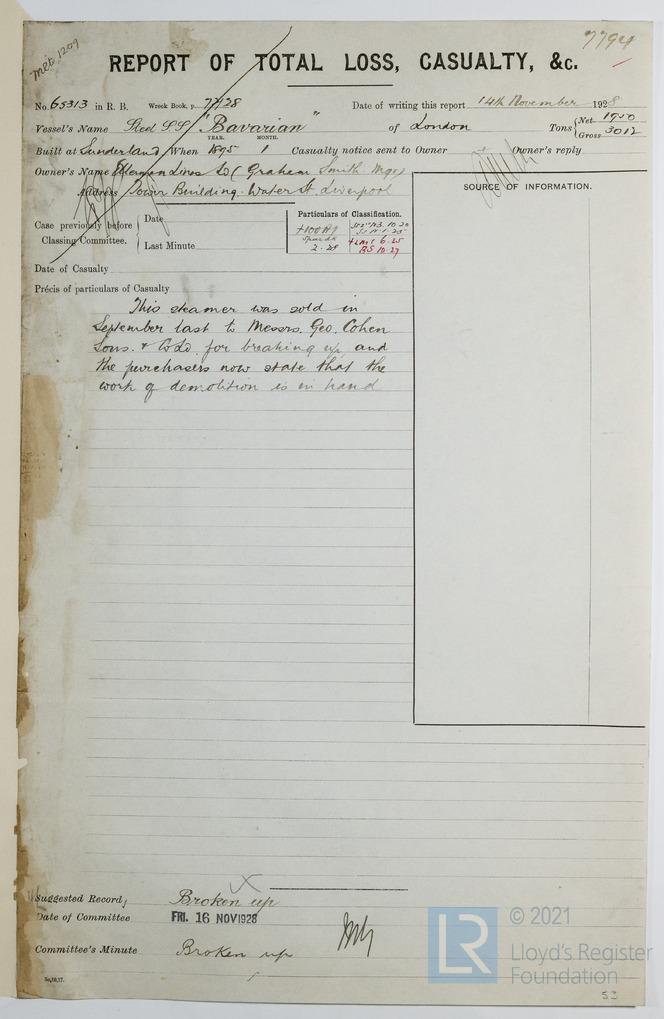 7794
Met 1209
REPORT OF TOTAL LOSS, CASUALTY, &c.
No. 65313 in R. B. Wreck Book, p. 77/28 Date of writing this report 14th November 1928
Vessel's Name Steel SS "Bavarian" of London Tons { Net 1950 Gross 3012
YEAR. MONTH.
Built at Sunderland When 1895 1 Casualty notice sent to Owner Owner's reply
Owner's Name Ellerman Lines Ld (Graham Smith Mgr)
Address Tower Building. Water St, Liverpool
SOURCE OF INFORMATION.
Case previously before Classing Committee. { Date
Last Minute
Particulars of Classification.
+100A1
2.28
+LMC 6.25
BS 10.27
Date of Casualty
Précis of particulars of Casualty
This steamer was sold in
September last to Messrs. Geo. Cohen
Sons. & Co Ld. for breaking up, and
the purchasers now state that the
work of demolition is in hand
Suggested Record, Broken up
Date of Committee FRI. 16 NOV 1928
Committee's Minute Broken up
5m,10,17.
LR © 2021
Lloyd's Register
Foundation
53